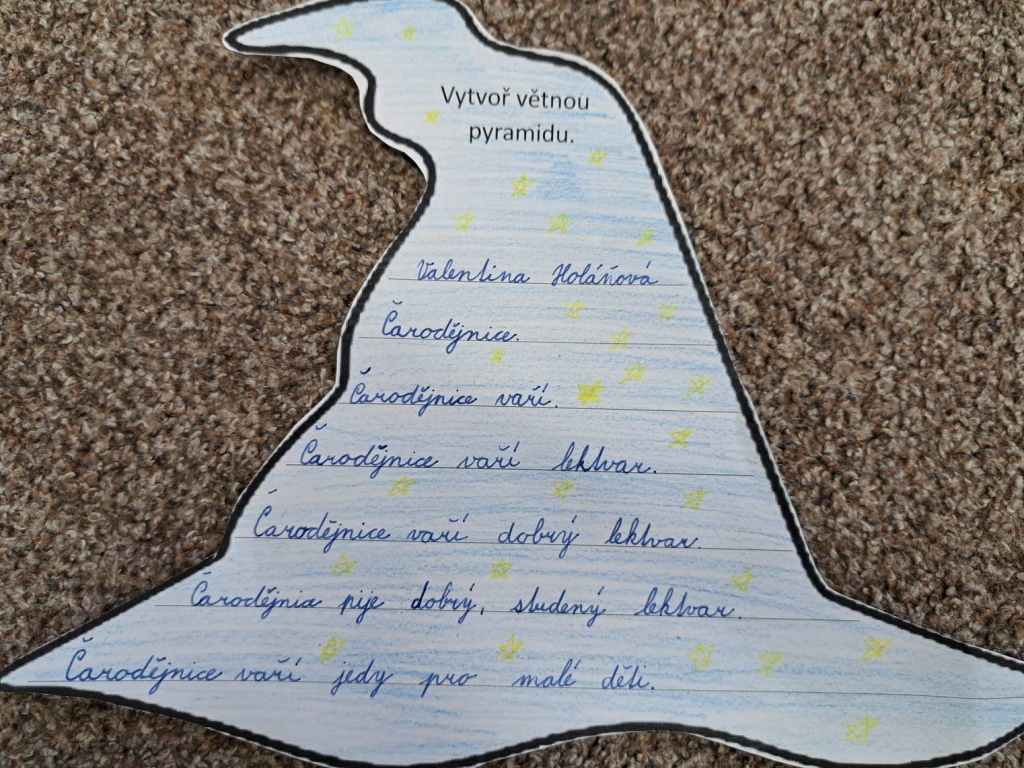 Vytvoř větnou
pyramidu.
Valentina Holáňová
Čarodějnice.
Čarodějnice vaří.
Čarodějnice vaří lektvar.
Čarodějnice vaří dobrý lektvar.
Čarodějnice pije dobrý, studený lektvar.
Čarodějnice vaří jedy pro malé děti.